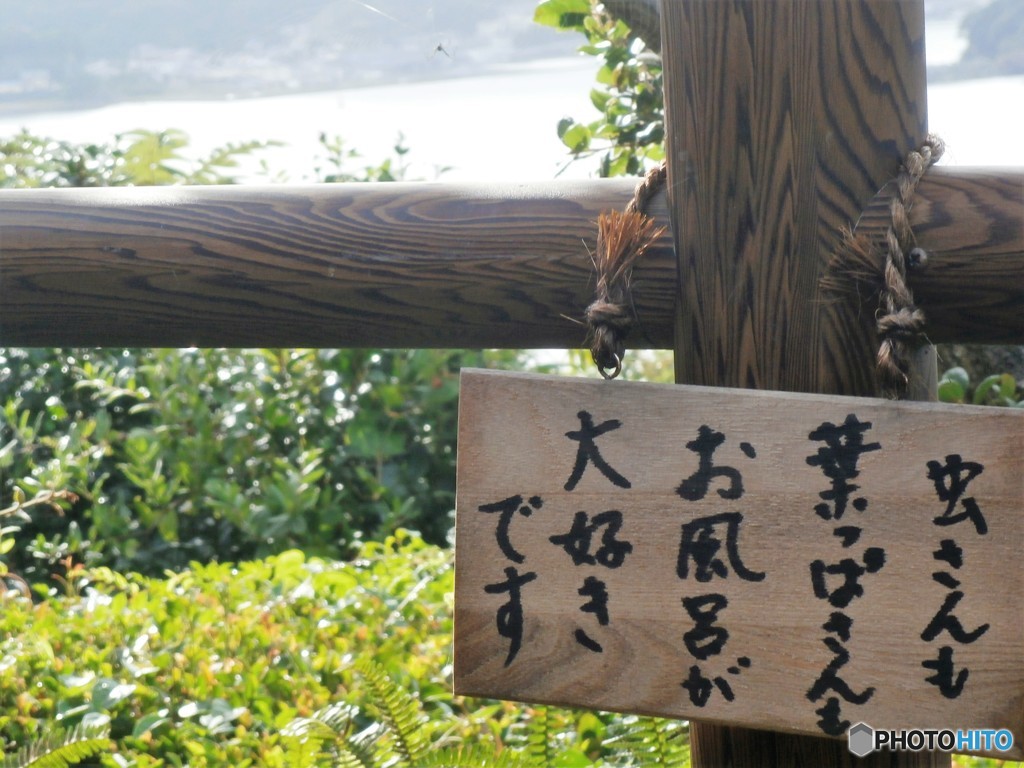 虫さんも
葉っぱさんも
お風呂が
大好き
です
PHOTOHITO